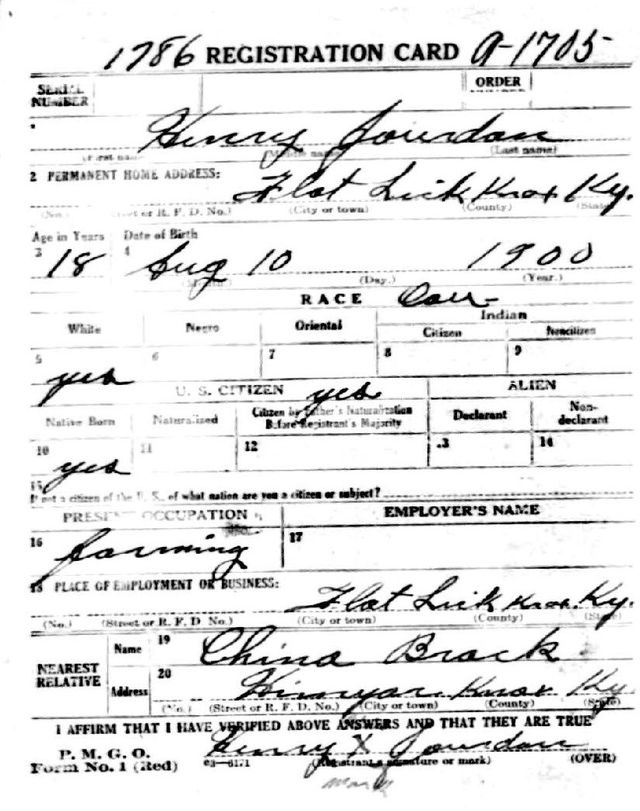 1786 REGISTRATION CARD A-1705
SERIAL NUMBER ORDER
Henry Jourdan
(First name) (Middle name) (Last name)
2 PERMANENT HOME ADDRESS: Flat Lick Knox Ky.
(No.) (Street or R. F. D. No.) (City or town) (County) (State)
Age in Years Date of Birth
3 18 4 Aug 10 1900
(Month.) (Day.) (Year.)
RACE Cau
White Negro Oriental Indian
Citizen Noncitizen
5 yes 6 7 8 9
U. S. CITIZEN yes ALIEN
Native Born Naturalized Citizen by Father's Naturalization Before Registrant's Majority Declarant Non-declarant
10 yes 11 12 13 14
15
If not a citizen of the U. S., of what nation are you a citizen or subject?
PRESENT OCCUPATION EMPLOYER'S NAME
16 farming 17
18 PLACE OF EMPLOYMENT OR BUSINESS:
Flat Lick Knox Ky.
(No.) (Street or R. F. D. No.) (City or town) (County) (State)
NEAREST RELATIVE Name 19 China Brock
Address 20 Hinyar Knox Ky
(No.) (Street or R. F. D. No.) (City or town) (County) (State)
I AFFIRM THAT I HAVE VERIFIED ABOVE ANSWERS AND THAT THEY ARE TRUE
P. M. G. O.
Form No. 1 (Red) 03—6171 Henry X Jourdan
(Registrant's signature or mark) (OVER)
mark